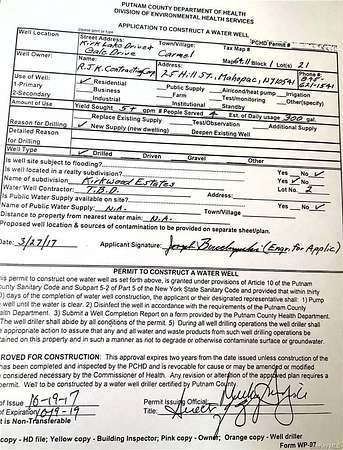 PUTNAM COUNTY DEPARTMENT OF HEALTH
DIVISION OF ENVIRONMENTAL HEALTH SERVICES
APPLICATION TO CONSTRUCT A WATER WELL
Please print or type PCHD Permit #
Well Location Street Address: Kirk Lake Drive & Gale Drive Town/Village: Carmel Tax Map # Map 64.11 Block 1 Lot(s) 21
Well Owner: Name: R.J.K. Contracting Corp Address: 25 Hill St. Mahopac, NY 10541 Phone #: 621-1541
Use of Well: ✓ Residential Public Supply Air/cond/heat pump Irrigation
1-Primary Business Farm Test/monitoring Other(specify)
2-Secondary Industrial Institutional Standby
Amount of Use Yield Sought 5+ gpm # People Served 4 Est. of Daily usage 300 gal.
Reason for Drilling Replace Existing Supply Test/Observation Additional Supply
✓ New Supply (new dwelling) Deepen Existing Well
Detailed Reason for Drilling
Well Type ✓ Drilled Driven Gravel Other
Is well site subject to flooding? Yes No ✓
Is well located in a realty subdivision? Yes ✓ No
Name of subdivision: Kirkwood Estates Lot No. 2
Water Well Contractor: T.B.D. Address:
Is Public Water Supply available on site? Yes No ✓
Name of Public Water Supply: N.A. Town/Village
Distance to property from nearest water main: N.A.
Proposed well location & sources of contamination to be provided on separate sheet/plan.
Date: 3/27/17 Applicant Signature: (Engr. for Applic.)
PERMIT TO CONSTRUCT A WATER WELL
his permit to construct water well as set forth above, is granted under provisions of Article 10 of the Putnam
ounty Sanitary Code and Subpart 5-2 of Part 5 of the New York State Sanitary Code and provided that within thirty
) days of the completion of water well construction, the applicant or their designated representative shall: 1) Pump
e well until the water is clear. 2) Disinfect the well in accordance with the requirements of the Putnam County
ealth Department. 3) Submit a Well Completion Report on a form provided by the Putnam County Health Department.
The well driller shall abide by all conditions of the permit. 5) During all well drilling operations the well driller shall
e appropriate action to assure that any and all water and waste products from such well drilling operations be
ntained on this property and in such a manner as not to degrade or otherwise contaminate surface or groundwater.
ROVED FOR CONSTRUCTION: This approval expires two years from the date issued unless construction of the
has been completed and inspected by the PCHD and is revocable for cause or may be amended or modified
considered necessary by the Commissioner of Health. Any revision or alteration of the approved plan requires a
permit. Well to be constructed by a water well driller certified by Putnam County.
of Issue 10-19-17 Permit Issuing Official:
of Expiration 10-19-19 Title:
it is Non-Transferable
copy - HD file; Yellow copy - Building Inspector; Pink copy - Owner; Orange copy - Well driller
Form WP-97